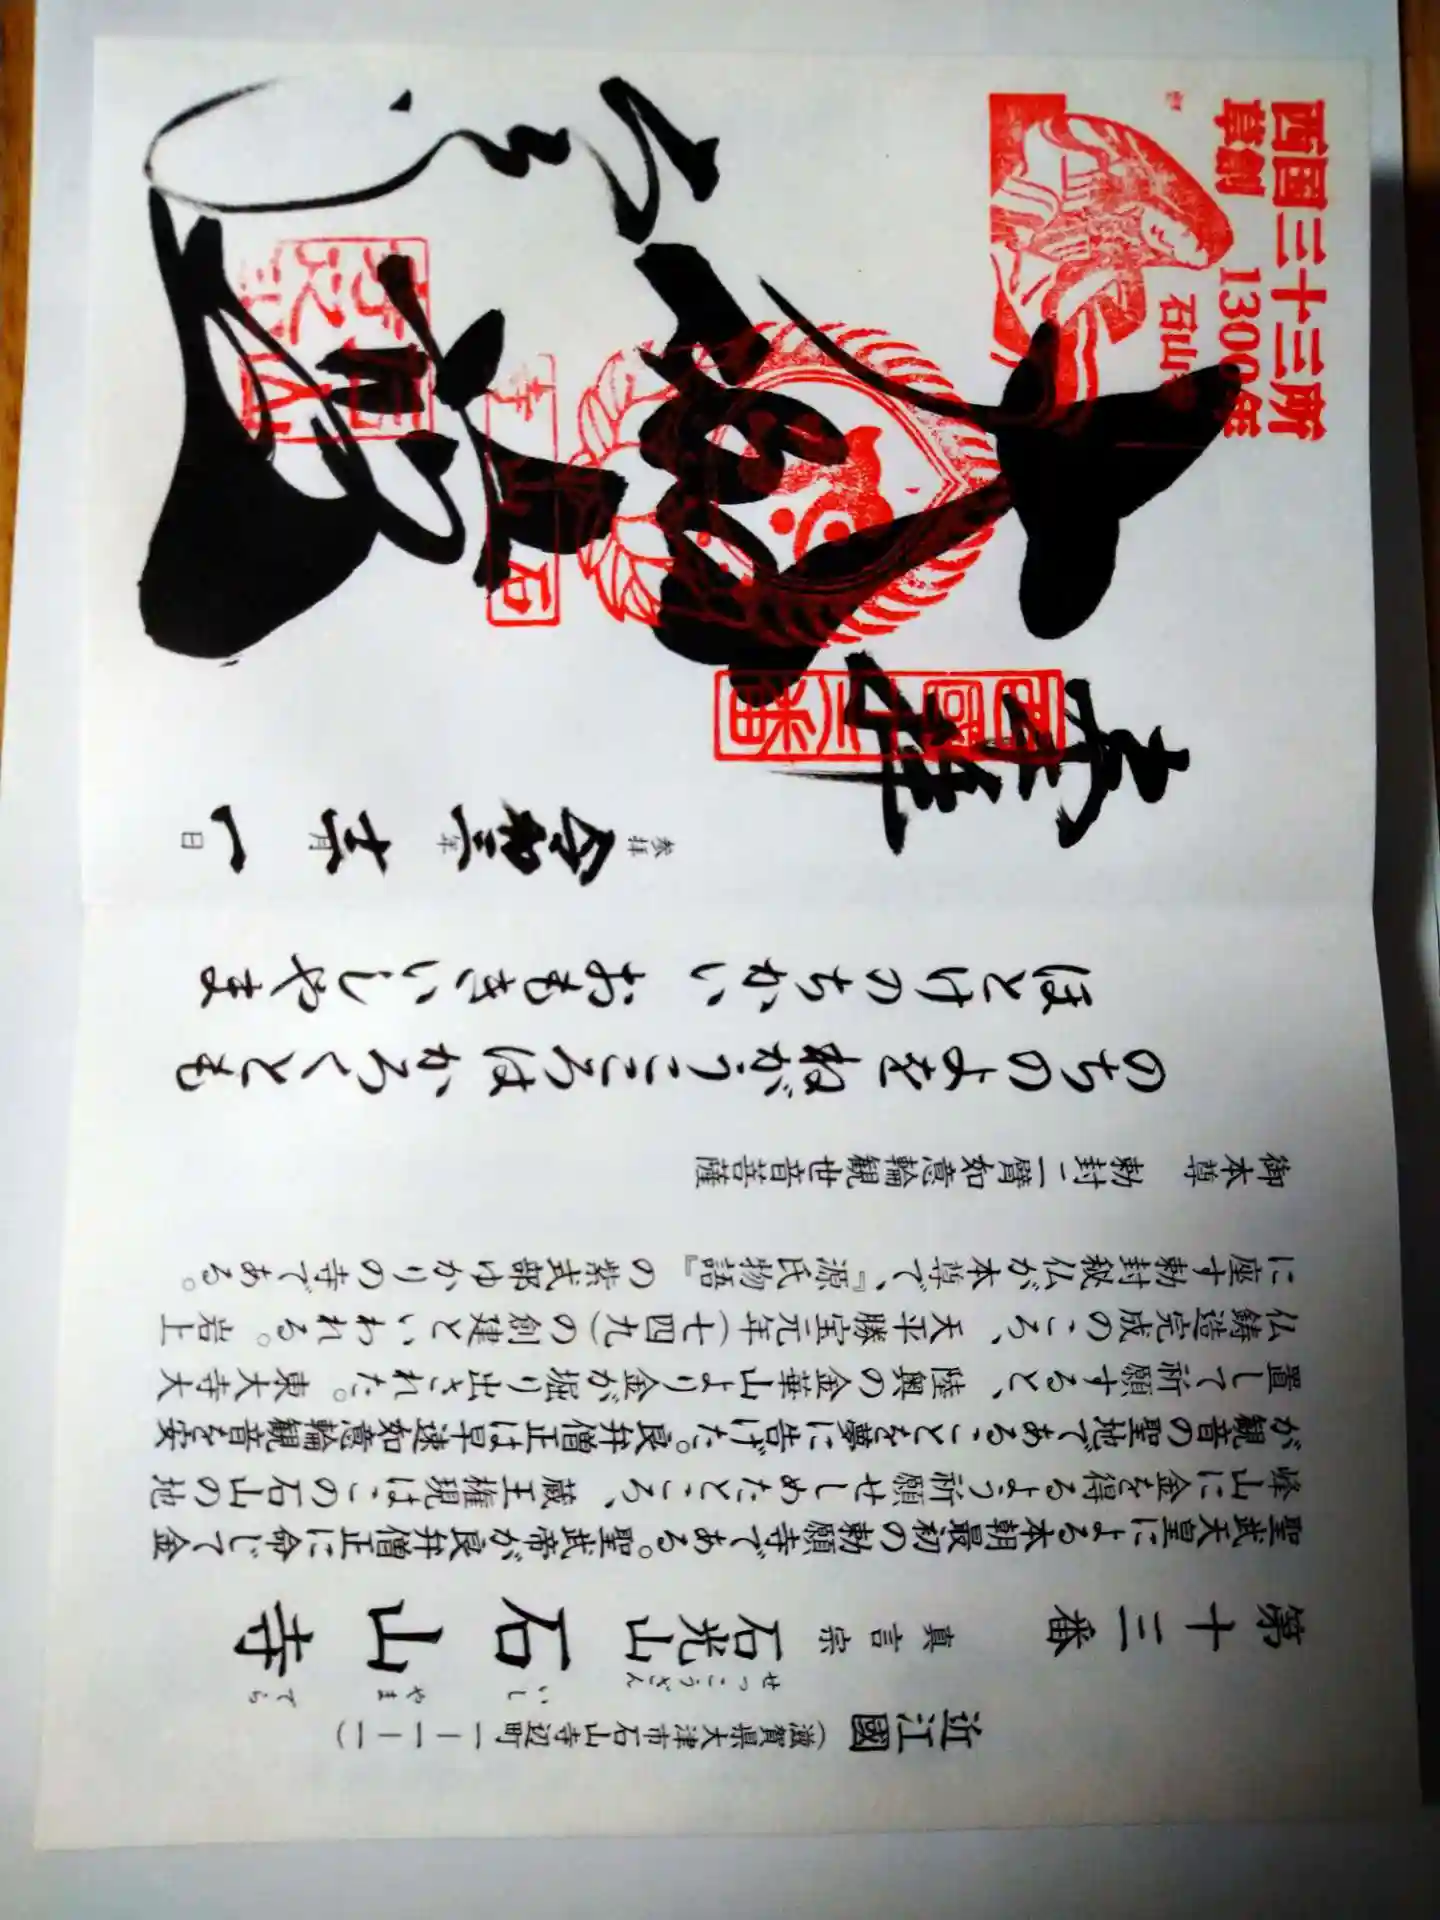 近江國(滋賀県大津市石山寺辺町一ー一ー一)
第十三番 真言宗 石光山 石山寺
せっこうざん いし やま でら
聖武天皇による本朝最初の勅願寺である。聖武帝が良弁僧正に命じて金
峰山に金を得るよう祈願せしめたところ、蔵王権現は、この石山の地
が観音の聖地であることを夢に告げた。良弁僧正は早速如意輪観音を安
置して祈願すると、陸奥の金華山より金が掘り出された。東大寺大
仏鋳造完成のころ、天平勝宝元年(七四九)の創建といわれる。岩上
に座す勅封秘仏が本尊で、『源氏物語』の紫式部ゆかりの寺である。
御本尊 勅封二臂如意輪観世音菩薩
のちのよを ねがうこころは かろくとも
ほとけのちかい おもきいしやま
奉拝
西國十三番
西国三十三所
草創1300年
石山
参拝 令和三年 月 一日